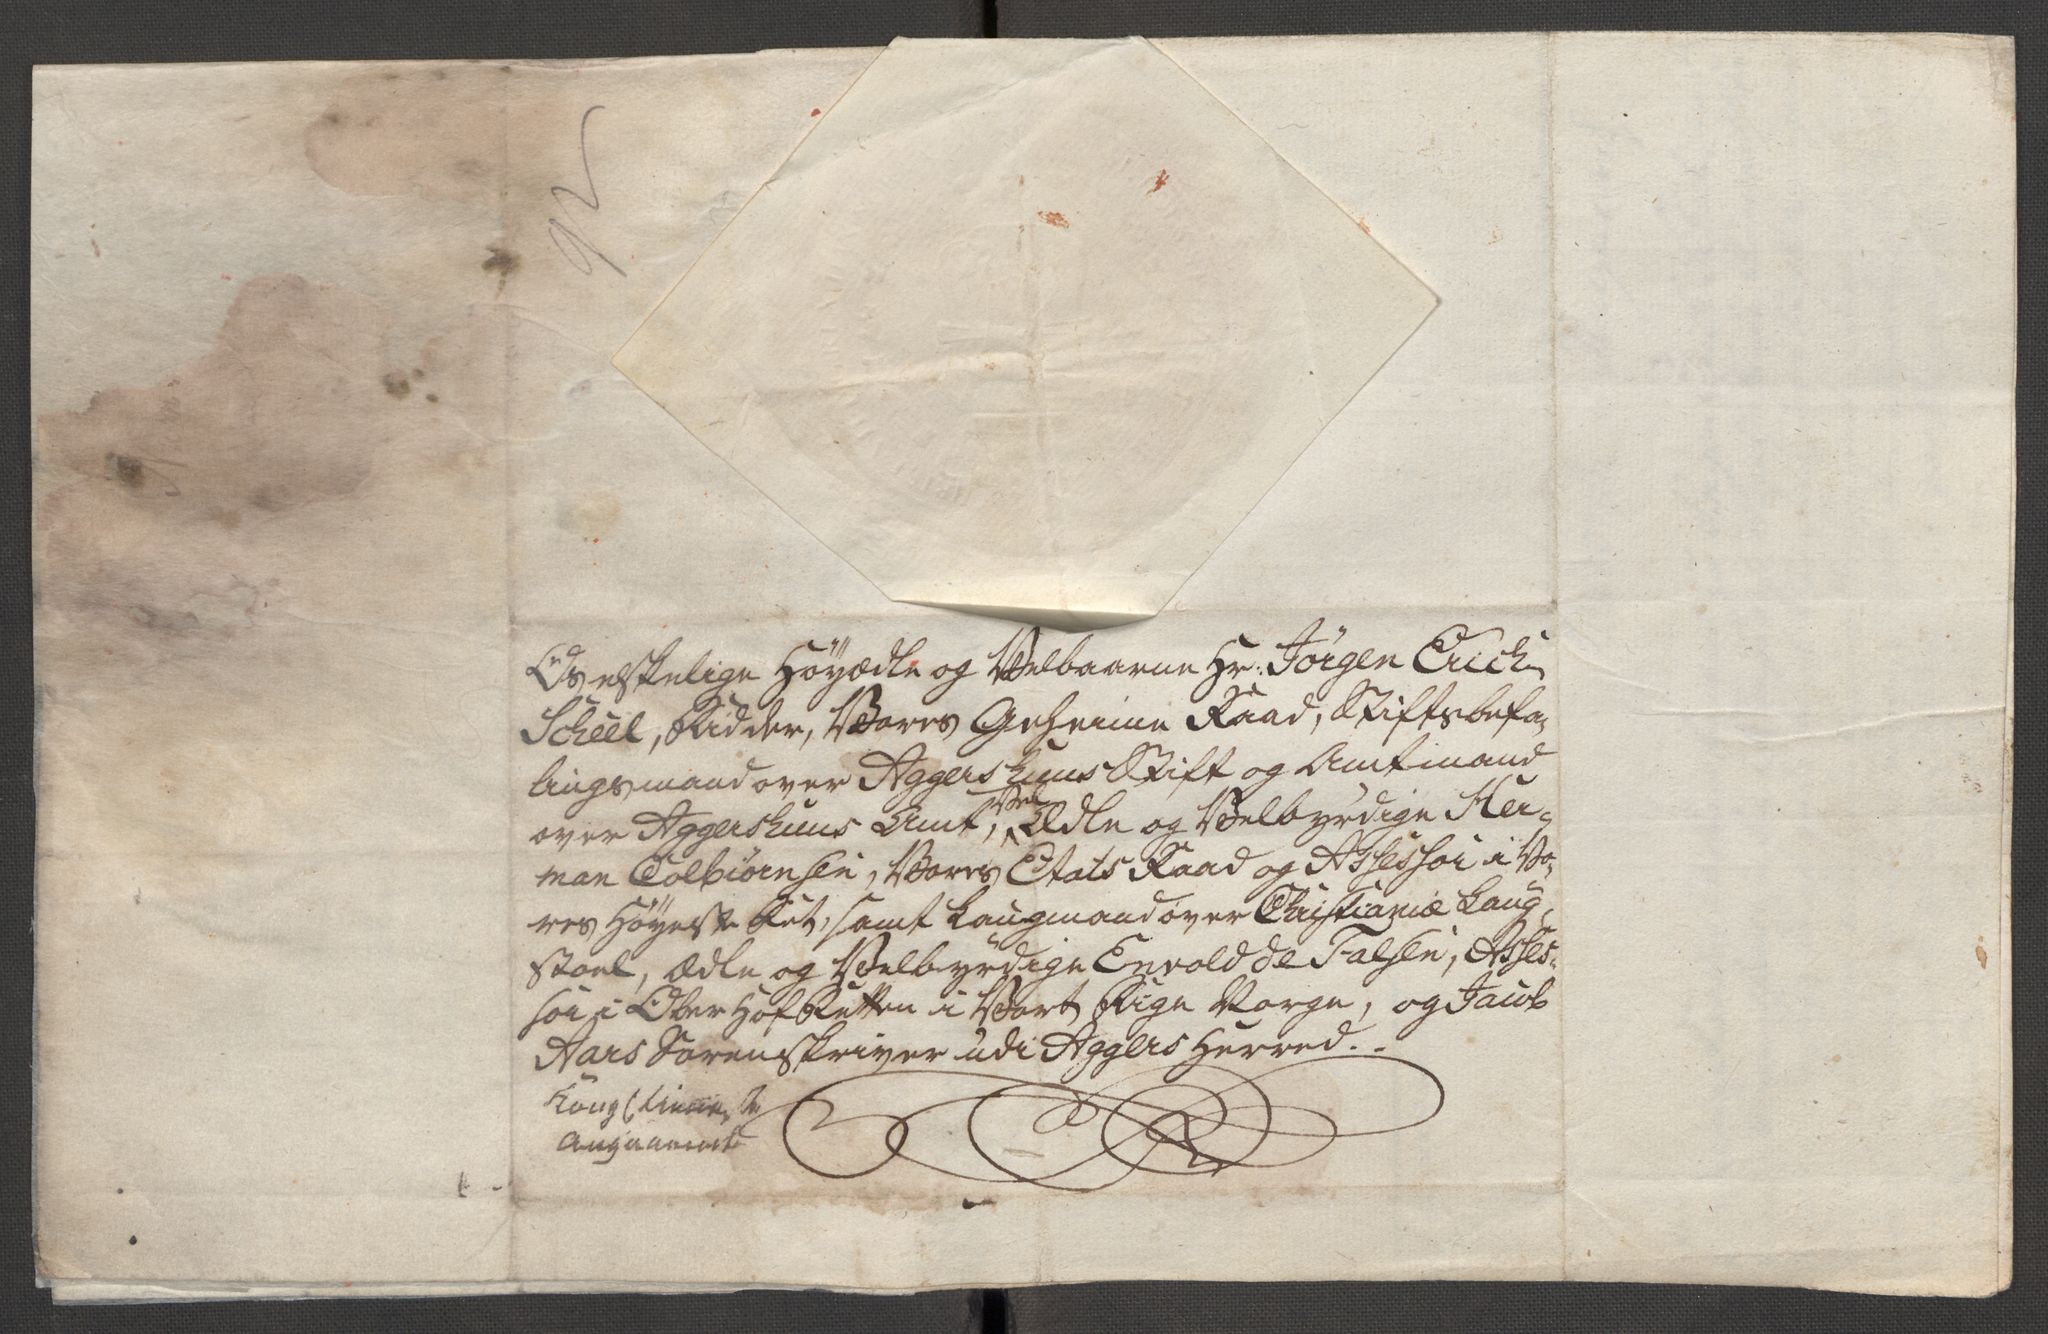 92
Os elskelige Höyædle og Velbaarne Hr: Jörgen Erich
Scheel, Ridder, Vores Geheime Raad, Stiftsbefa-
lingsmand over Aggershuus Stift og Amtmand
over Aggershuus Amt, Vel Ædle og Velbyrdige Her-
man Colbiörnsen, Vores Etats Raad og Assessor i Vo-
res Höyeste Ret, samt Laugmand over Christianiæ Laug-
stoel, Ædle og Velbyrdige Envold de Falsen, Asses-
sor i Ober Hof Retten i Vort Rige Norge, og Jacob
Aars Sorenskriver udi Aggers Herred..